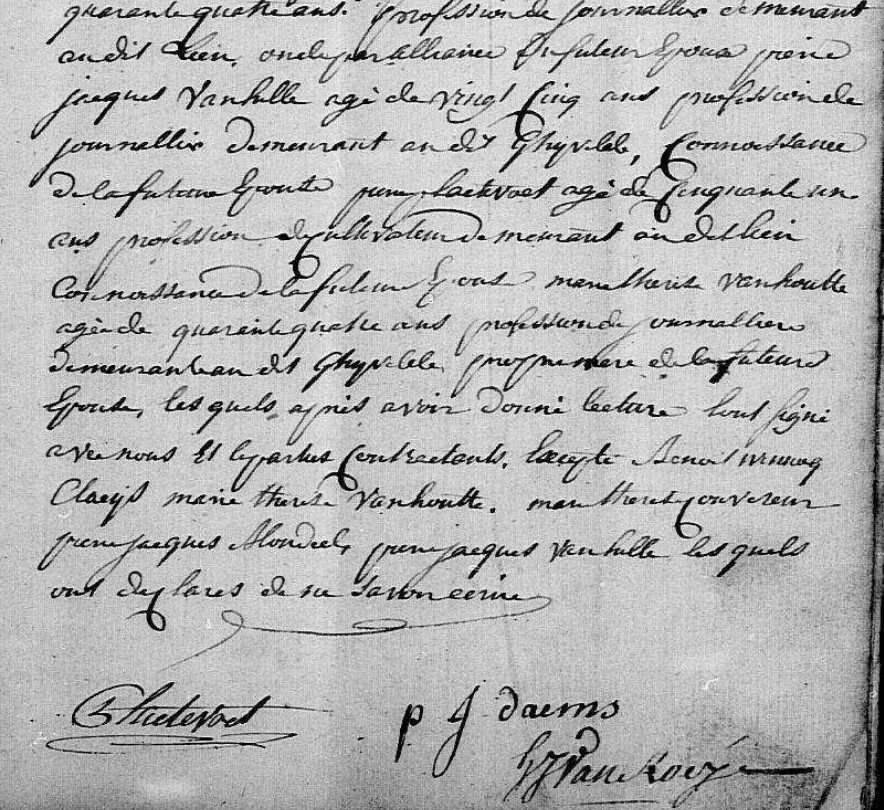 quarante quatre ans. profession de journallier demeurant
au dit lieu, oncle par alliance du futeur Epoux pierre
jacques Vanhille agé de vingt Cinq ans profession de
journallier demeurant au dit Ghyvelde, Connoissance
de la future Epouse pierre agé de Cinquante un
ans profession de Cultivateur demeurant au dit lieu
Connoissance de la future Epouse marie therese Vanhoutte
agée de quarante quatre ans profession de journalliere
demeurante au dit Ghyvelde propre mere de la future
Epouse, les quels, après avoir donné lecture l'ont signé
avec nous Et les parties Contractants, Excepté Benoit
Claeijs marie therese Vanhoutte. marie therese Couvreur
pierre jacques Blondeel, pierre jacques Vanhille les quels
ont declarés de ne savoir ecrire
p J daems